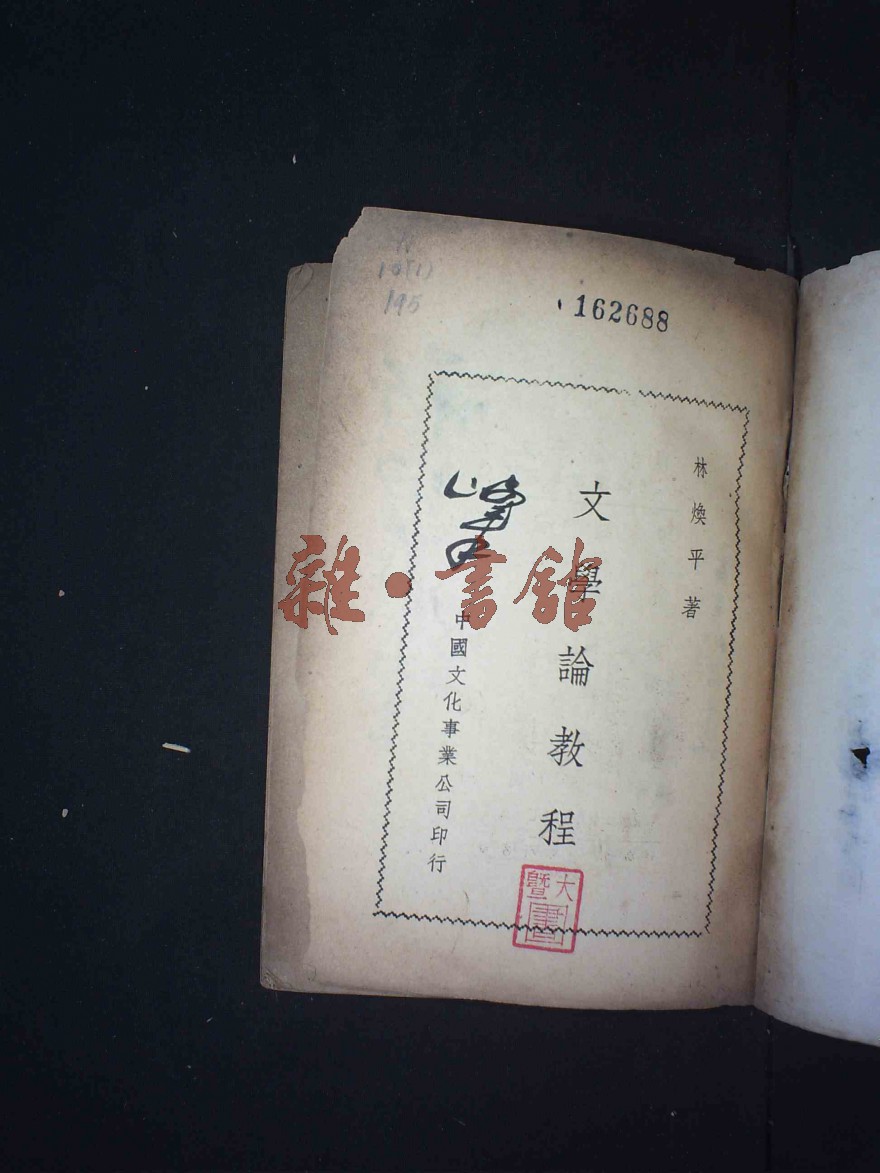 162688
林煥平著
文學論教程
中國文化事業公司印行
大暨圕
雜·書館